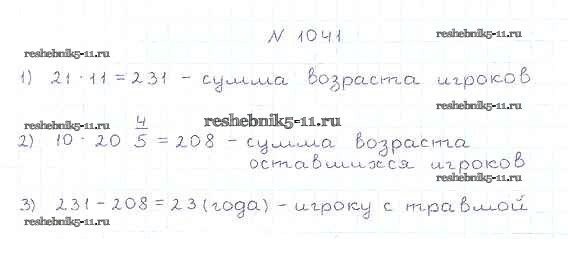 N 1041
reshebnik5-11.ru
reshebnik5-11.ru
1) 21 · 11 = 231 - сумма возраста игроков
reshebnik5-11.ru
reshebnik5-11.ru
reshebnik5-11.ru
2) 10 · 20 4/5 = 208 - сумма возраста
оставшихся игроков
reshebnik5-11.ru
3) 231 - 208 = 23 (года) - игроку с травмой
reshebnik5-11.ru